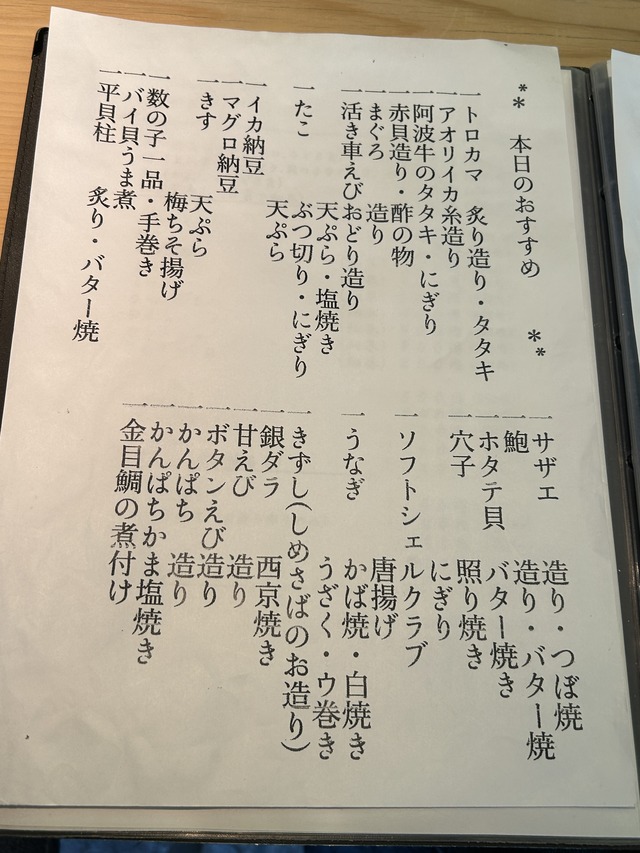 ** 本日のおすすめ **
一 トロカマ 炙り造り・タタキ
一 アオリイカ糸造り
一 阿波牛のタタキ・にぎり
一 赤貝造り・酢の物
一 まぐろ 造り
一 活き車えびおどり造り
天ぷら・塩焼き
一 たこ ぶつ切り・にぎり
天ぷら
一 イカ納豆
一 マグロ納豆
一 きす 天ぷら
梅ちそ揚げ
一 数の子一品・手巻き
一 バイ貝うま煮
一 平貝柱 炙り・バター焼
一 サザエ 造り・つぼ焼
一 鮑 造り・バター焼
一 ホタテ貝 バター焼き
一 穴子 照り焼き
にぎり
一 ソフトシェルクラブ
唐揚げ
一 うなぎ かば焼・白焼き
うざく・ウ巻き
一 きずし(しめさばのお造り)
一 銀ダラ 西京焼き
一 甘えび 造り
一 ボタンえび 造り
一 かんぱち 造り
一 かんぱちかま塩焼き
一 金目鯛の煮付け